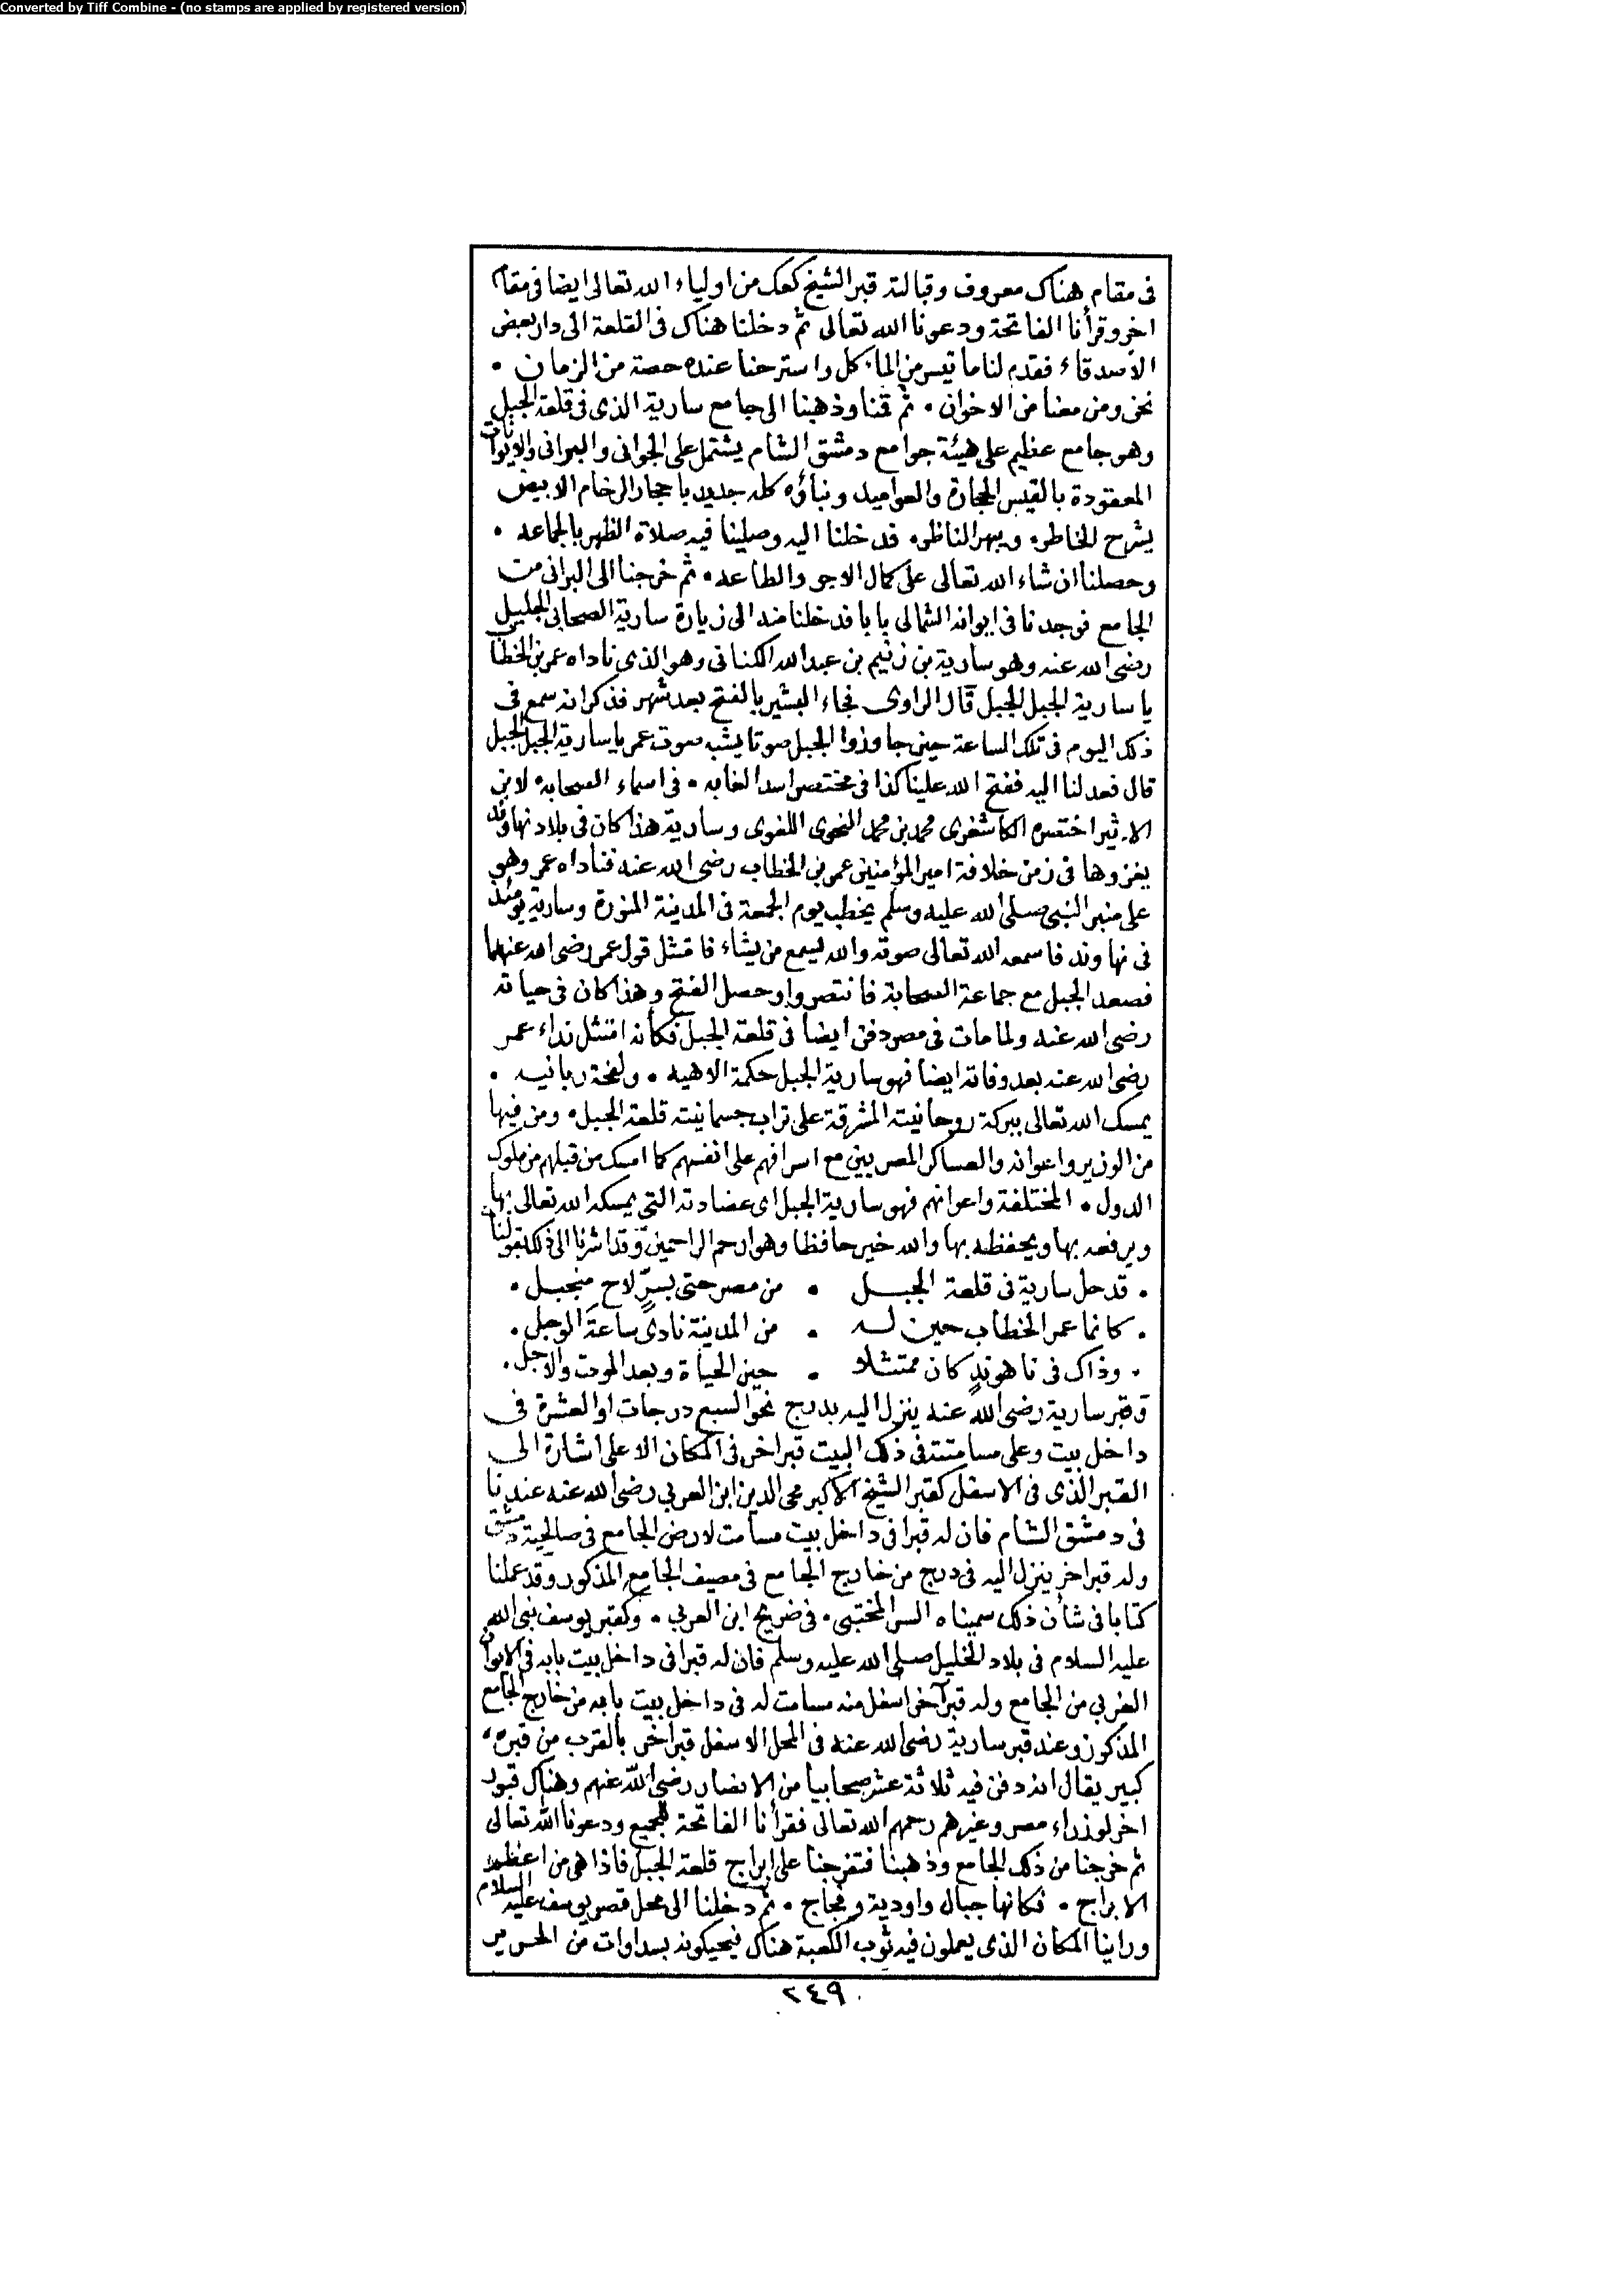 Converted by Tiff Combine - (no stamps are applied by registered version)
فى مقام هناك معروف وقبالته قبر الشيخ كعك من اولياء الله تعالى ايضا فى مقام
اخر وقرأنا الفاتحة ودعونا الله تعالى ثم دخلنا هناك فى القلعة الى دار بعض
الاصدقاء فقدم لنا ما تيسر من المآكل واسترحنا عنده حصة من الزمان .
نحن ومن معنا من الاخوان . ثم قمنا وذهبنا الى جامع سارية الذى فى قلعة الجبل
وهو جامع عظيم على هيئة جوامع دمشق الشام يشتمل على الجوانى والبرانى والايوانات
المعقودة بالقبس الحجارة والعواميد وبناؤه كله جديد باحجار الرخام الابيض
يشرح الخاطر . ويبهر الناظر . فدخلنا اليه وصلينا فيه صلاة الظهر بالجماعه .
وحصلنا ان شاء الله تعالى على كمال الاجر والطاعه . ثم خرجنا الى البرانى من
الجامع فوجدنا فى ايوانه الشمالى بابا فدخلنا منه الى زيارة سارية الصحابى الجليل
رضى الله عنه وهو سارية بن زنيم بن عبد الله الكنانى وهو الذى ناداه عمر بن الخطاب
يا سارية الجبل الجبل قال الراوى فجاء البشير بالفتح بعد شهر فذكر انه سمع فى
ذلك اليوم فى تلك الساعة حين جاوزوا الجبل صوتا يشبه صوت عمر يا سارية الجبل الجبل
قال فعدلنا اليه ففتح الله علينا كذا فى مختصر اسد الغابه . فى اسماء الصحابه لابن
الاثير اختصره الكاشغرى محمد بن محمد النحوى اللغوى وسارية هذا كان فى بلاد نهاوند
يغزوها فى زمن خلافة امير المؤمنين عمر بن الخطاب رضى الله عنه فناداه عمر وهو
على منبر النبى صلى الله عليه وسلم يخطب يوم الجمعة فى المدينة المنورة وسارية يومئذ
فى نهاوند فاسمعه الله تعالى صوته والله يسمع من يشاء فامتثل قول عمر رضى الله عنهما
فصعد الجبل مع جماعة الصحابة فانتصروا وحصل الفتح وهذا كان فى حياته
رضى الله عنه ولما مات فى مصر دفن ايضا فى قلعة الجبل فكأنه امتثل نداء عمر
رضى الله عنه بعد وفاته ايضا فهو سارية الجبل حكمة الاهيه . ولمحة ربانيه .
يمسك الله تعالى ببركة روحانيته المشرقة على تراب جسمانيته قلعة الجبل . ومن فيها
من الوزير واعوانه والعساكر المصريين مع اسرافهم على انفسهم كما امسك من قبلهم من ملوك
الدول . المختلفة واعوانهم فهو سارية الجبل اى عضادته التى يمسكه الله تعالى بها
ويرفعه بها ويحفظه بها والله خير حافظا وهو ارحم الراحمين وقد اشرنا الى ذلك بقولنا
. قد حل سارية فى قلعة الجبل . من مصر حتى بسرٍّ لاح منجبل .
. كانما عمر الخطاب حين له . من المدينة نادى ساعة الوجل .
. وذاك فى ناهوندٍ كان ممتثلا . حين الحياة وبعد الموت والاجل .
وقبر سارية رضى الله عنه ينزل اليه بدرج نحو السبع درجات او العشرة فى
داخل بيت وعلى مسامتته فى ذلك البيت قبر اخر فى المكان الاعلى اشارة الى
القبر الذى فى الاسفل كقبر الشيخ الاكبر محى الدين ابن العربى رضى الله عنه عندنا
فى دمشق الشام فان له قبرا فى داخل بيت مسامت لارض الجامع فى صالحية دمشق
وله قبر اخر ينزل اليه فى درج من خارج الجامع فى مصيف الجامع المذكور وقد عملنا
كتابا فى شأن ذلك سميناه السر المختبى . فى ضريح ابن العربى . وكقبر يوسف نبى الله
عليه السلام فى بلاد الخليل صلى الله عليه وسلم فان له قبرا فى داخل بيت بابه فى الايوان
الغربى من الجامع وله قبر آخر اسفل منه مسامت له فى داخل بيت بابه من خارج الجامع
المذكور وعند قبر سارية رضى الله عنه فى المحل الاسفل قبر اخر بالقرب من قبره
كبير يقال انه دفن فيه ثلاثة عشر صحابيا من الانصار رضى الله عنهم وهناك قبور
اخر لوزراء مصر وغيرهم رحمهم الله تعالى فقرأنا الفاتحة للجميع ودعونا الله تعالى
ثم خرجنا من ذلك الجامع وذهبنا فتفرجنا على ابراج قلعة الجبل فاذا هى من اعظم
الابراج . فكانها جبال واودية وفجاج . ثم دخلنا الى محل قصر يوسف عليه السلام
وراينا المكان الذى يعملون فيه ثوب الكعبة هناك فيحيكونه بسداوات من الحرير
٢٤٩